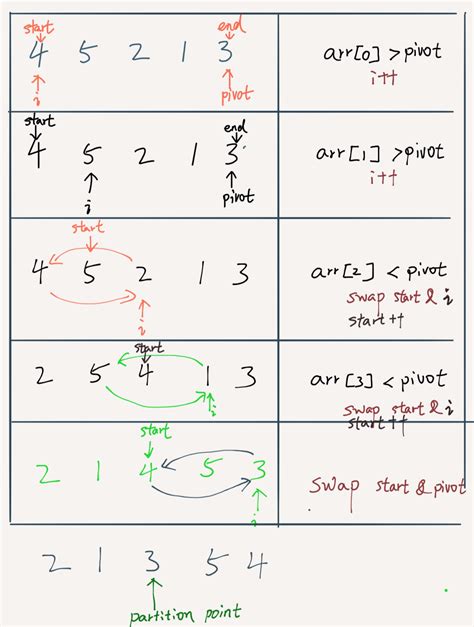 start end
4 5 2 1 3 arr[0] > pivot
i pivot i++
start end
4 5 2 1 3 arr[1] > pivot
i pivot i++
start
4 5 2 1 3 arr[2] < pivot
i swap start & i
start ++
start
2 5 4 1 3 arr[3] < pivot
i swap start & i
start ++
start
2 1 4 5 3 swap start & pivot
i
2 1 3 5 4
partition point